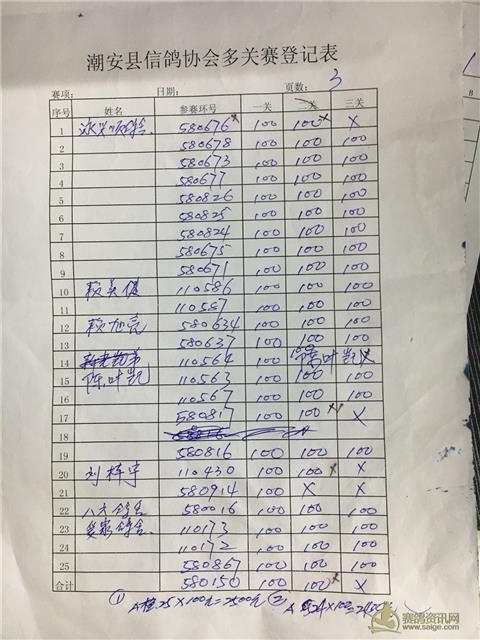 潮安县信鸽协会多关赛登记表
赛项: 日期: 页数: 3
序号 姓名 参赛环号 一关 二关 三关
1 580676 100 100 x X
2 580678 100 100 100
3 580673 100 100 100
4 580677 100 100 100
5 580826 100 100 100
6 580825 100 100 100
7 580824 100 100 100
8 580675 100 100 100
9 580671 100 100 100
10 110586 100 100 100
11 110587 100 100 100
12 580634 100 100 100
13 580637 100 100 100
14 110564 100 100 陈叶凯 X
15 陈叶凯 110563 100 100 100
16 110567 100 100 100
17 580817 100 100 x X
18
19 580816 100 100 100
20 刘梓宇 110430 100 100 x X
21 580914 100 X X
22 八方鸽舍 580016 100 100 100
23 110173 100 100 100
24 110172 100 100 100
25 580867 100 100 100
合计 580150 100 100 x X
① 25×100元=2500元 ② A 24×100=2400元
赛鸽资讯网
www.saige.com